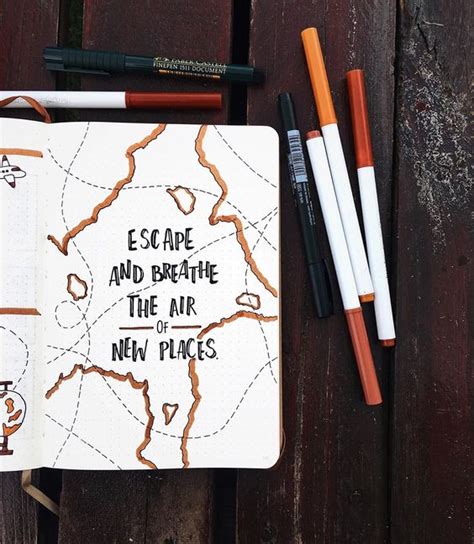 FABER-CASTELL
FINEPEN 1511 DOCUMENT
ESCAPE
AND BREATHE
THE AIR
OF
NEW PLACES.